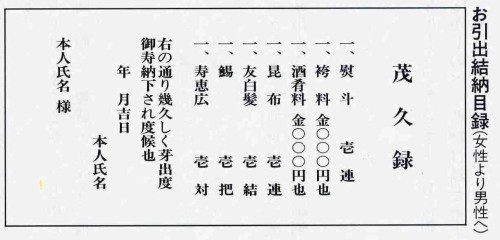 お引出結納目録(女性より男性へ)
茂久録
一、熨斗 壱連
一、袴料 金〇〇〇円也
一、酒肴料 金〇〇〇円也
一、昆布 壱連
一、友白髪 壱結
一、鯣 壱把
一、寿恵広 壱対
右の通り幾久しく芽出度
御寿納下され度候也
年 月吉日
本人氏名
本人氏名 様